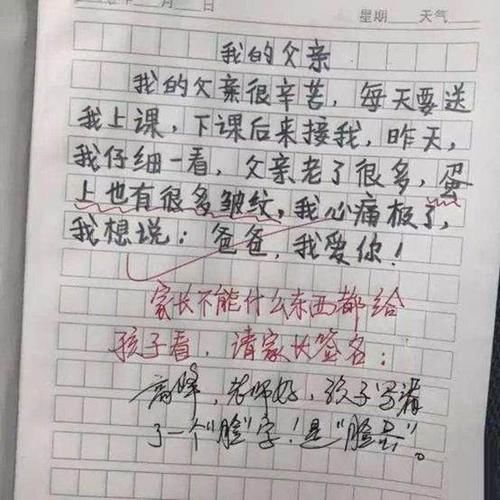 月 日 星期 天气
我的父亲
我的父亲很辛苦，每天要送
我上课，下课后来接我，昨天，
我仔细一看，父亲老了很多，蛋
上也有很多皱纹，我心痛极了，
我想说：爸爸，我爱你！
家长不能什么东西都给
孩子看，请家长签名：
高峰，老师好，孩子写
了一个"脸"字！是"脸蛋"。